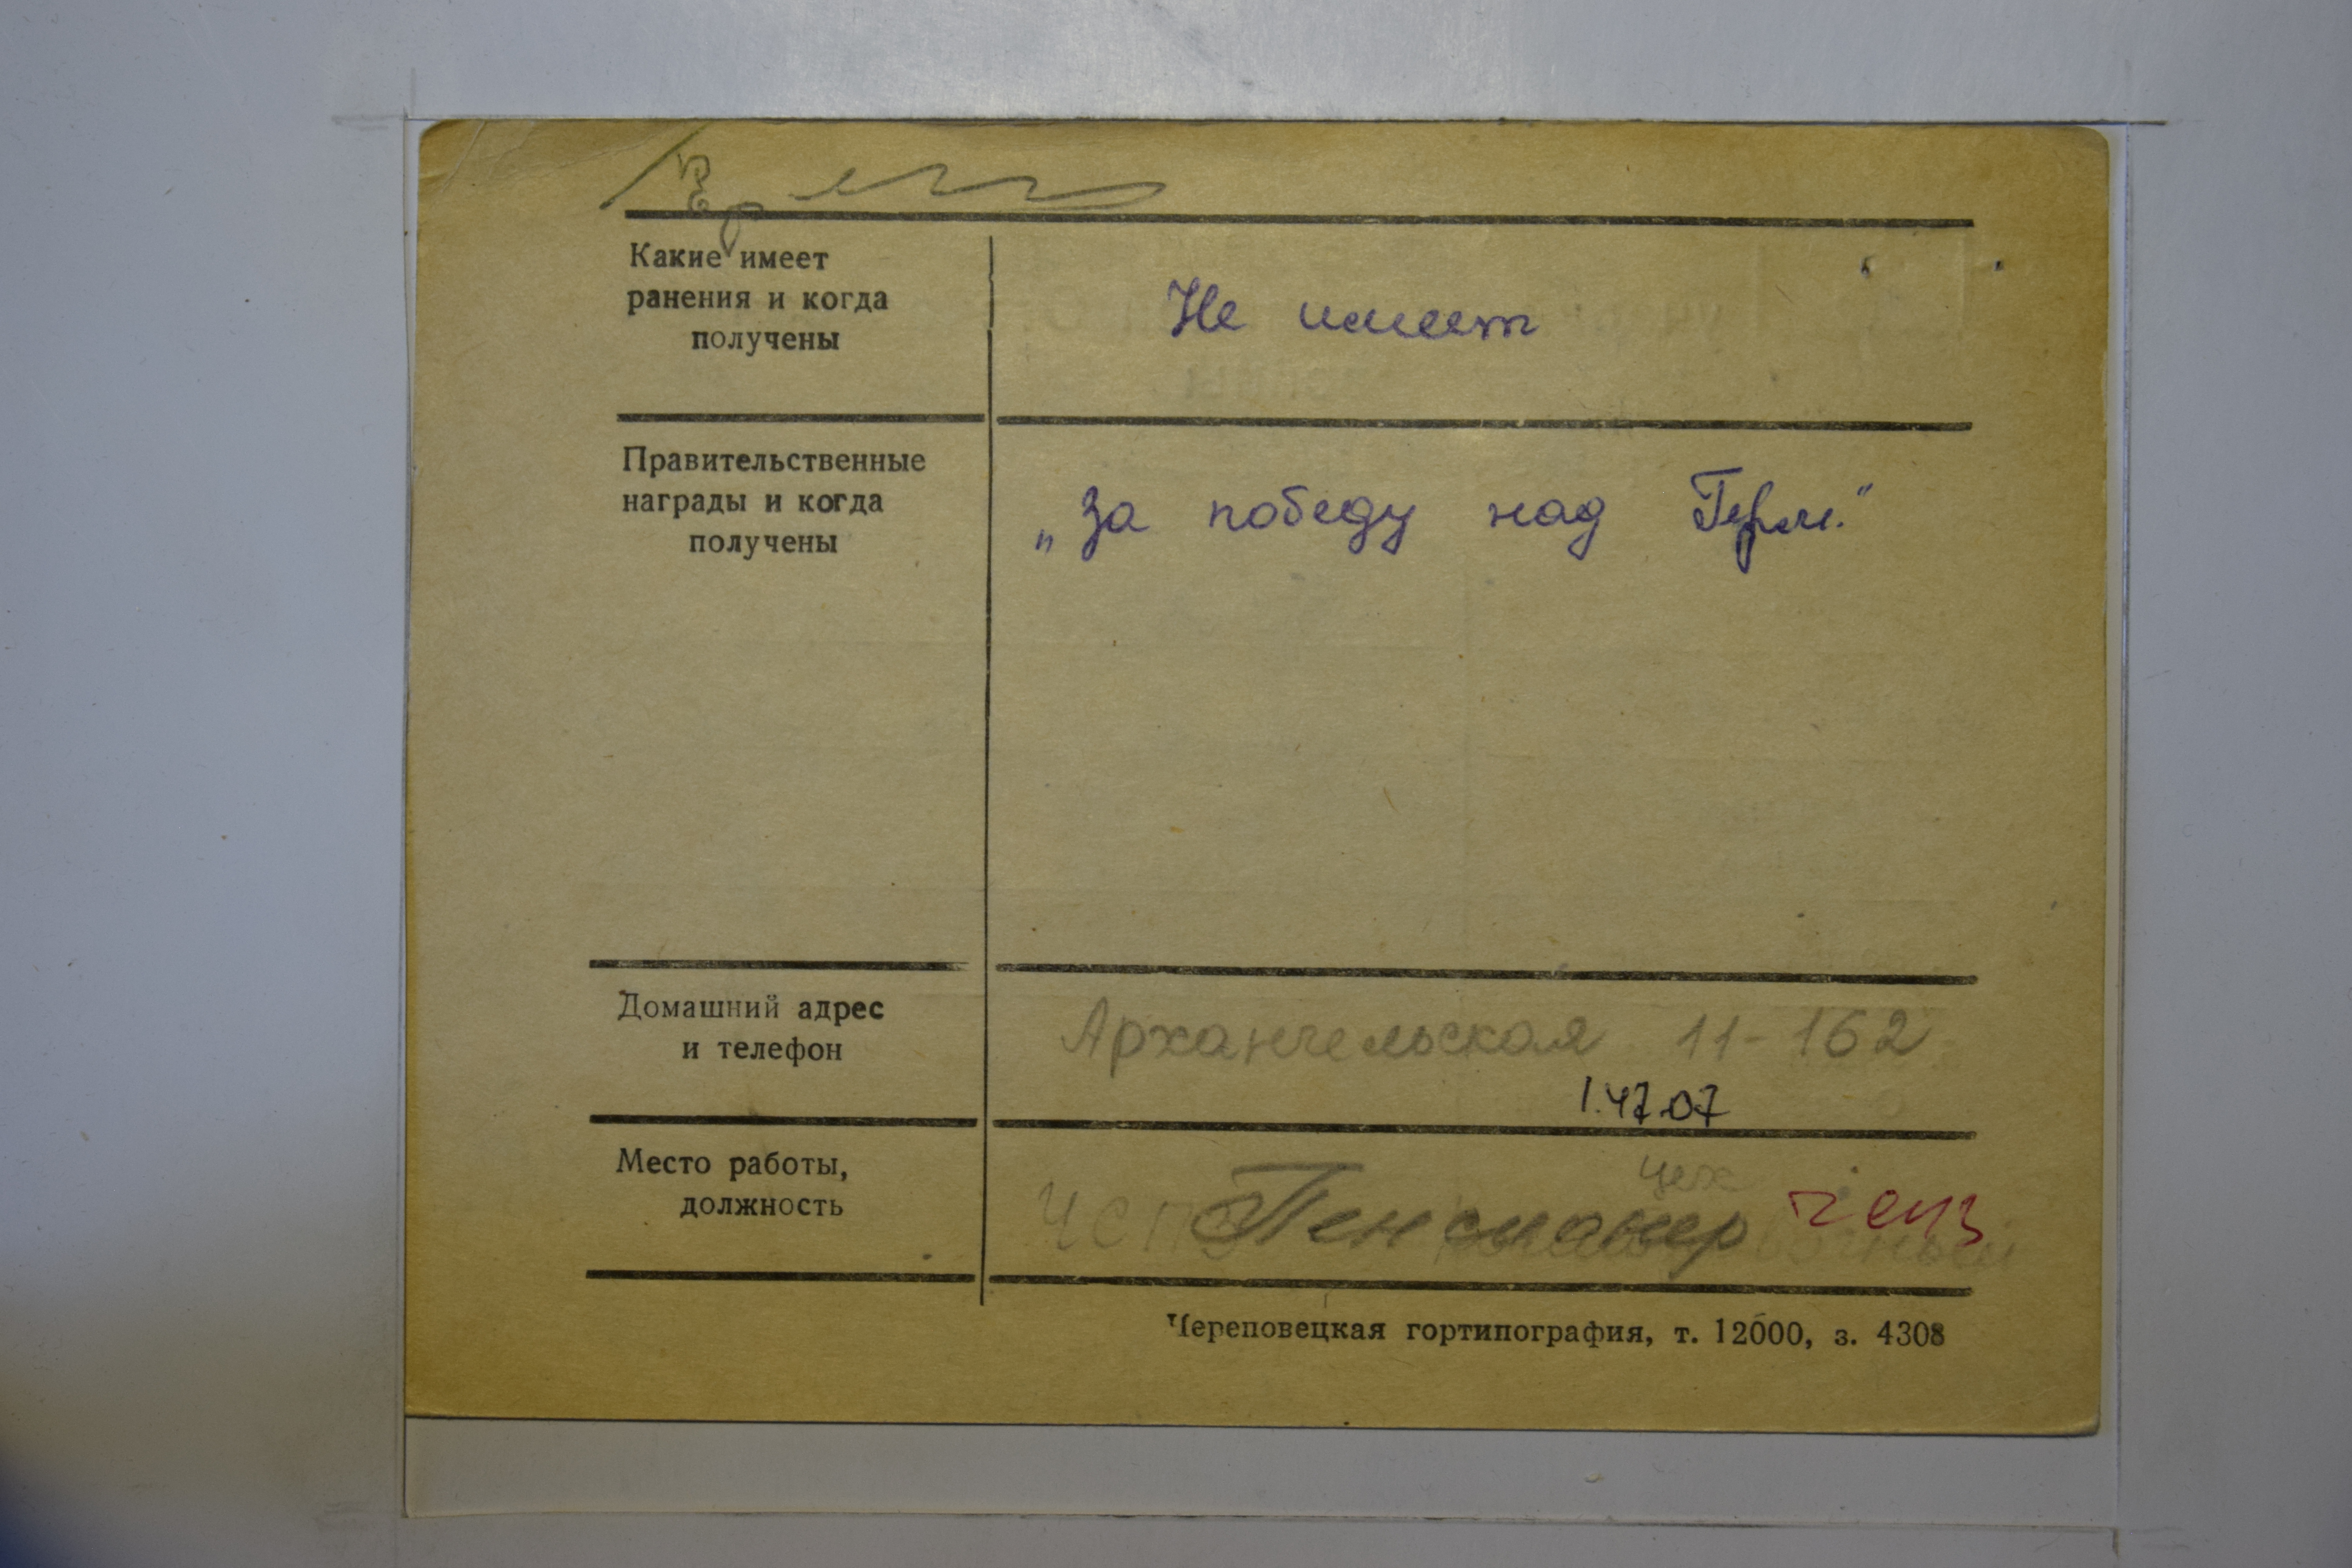 Какие имеет
ранения и когда
получены
Не имеет
Правительственные
награды и когда
получены
„За победу над Герм."
Домашний адрес
и телефон
Архангельская 11-162
1.47.07
Место работы,
должность
цех
Пенсионер
Череповецкая гортипография, т. 12000, з. 4308